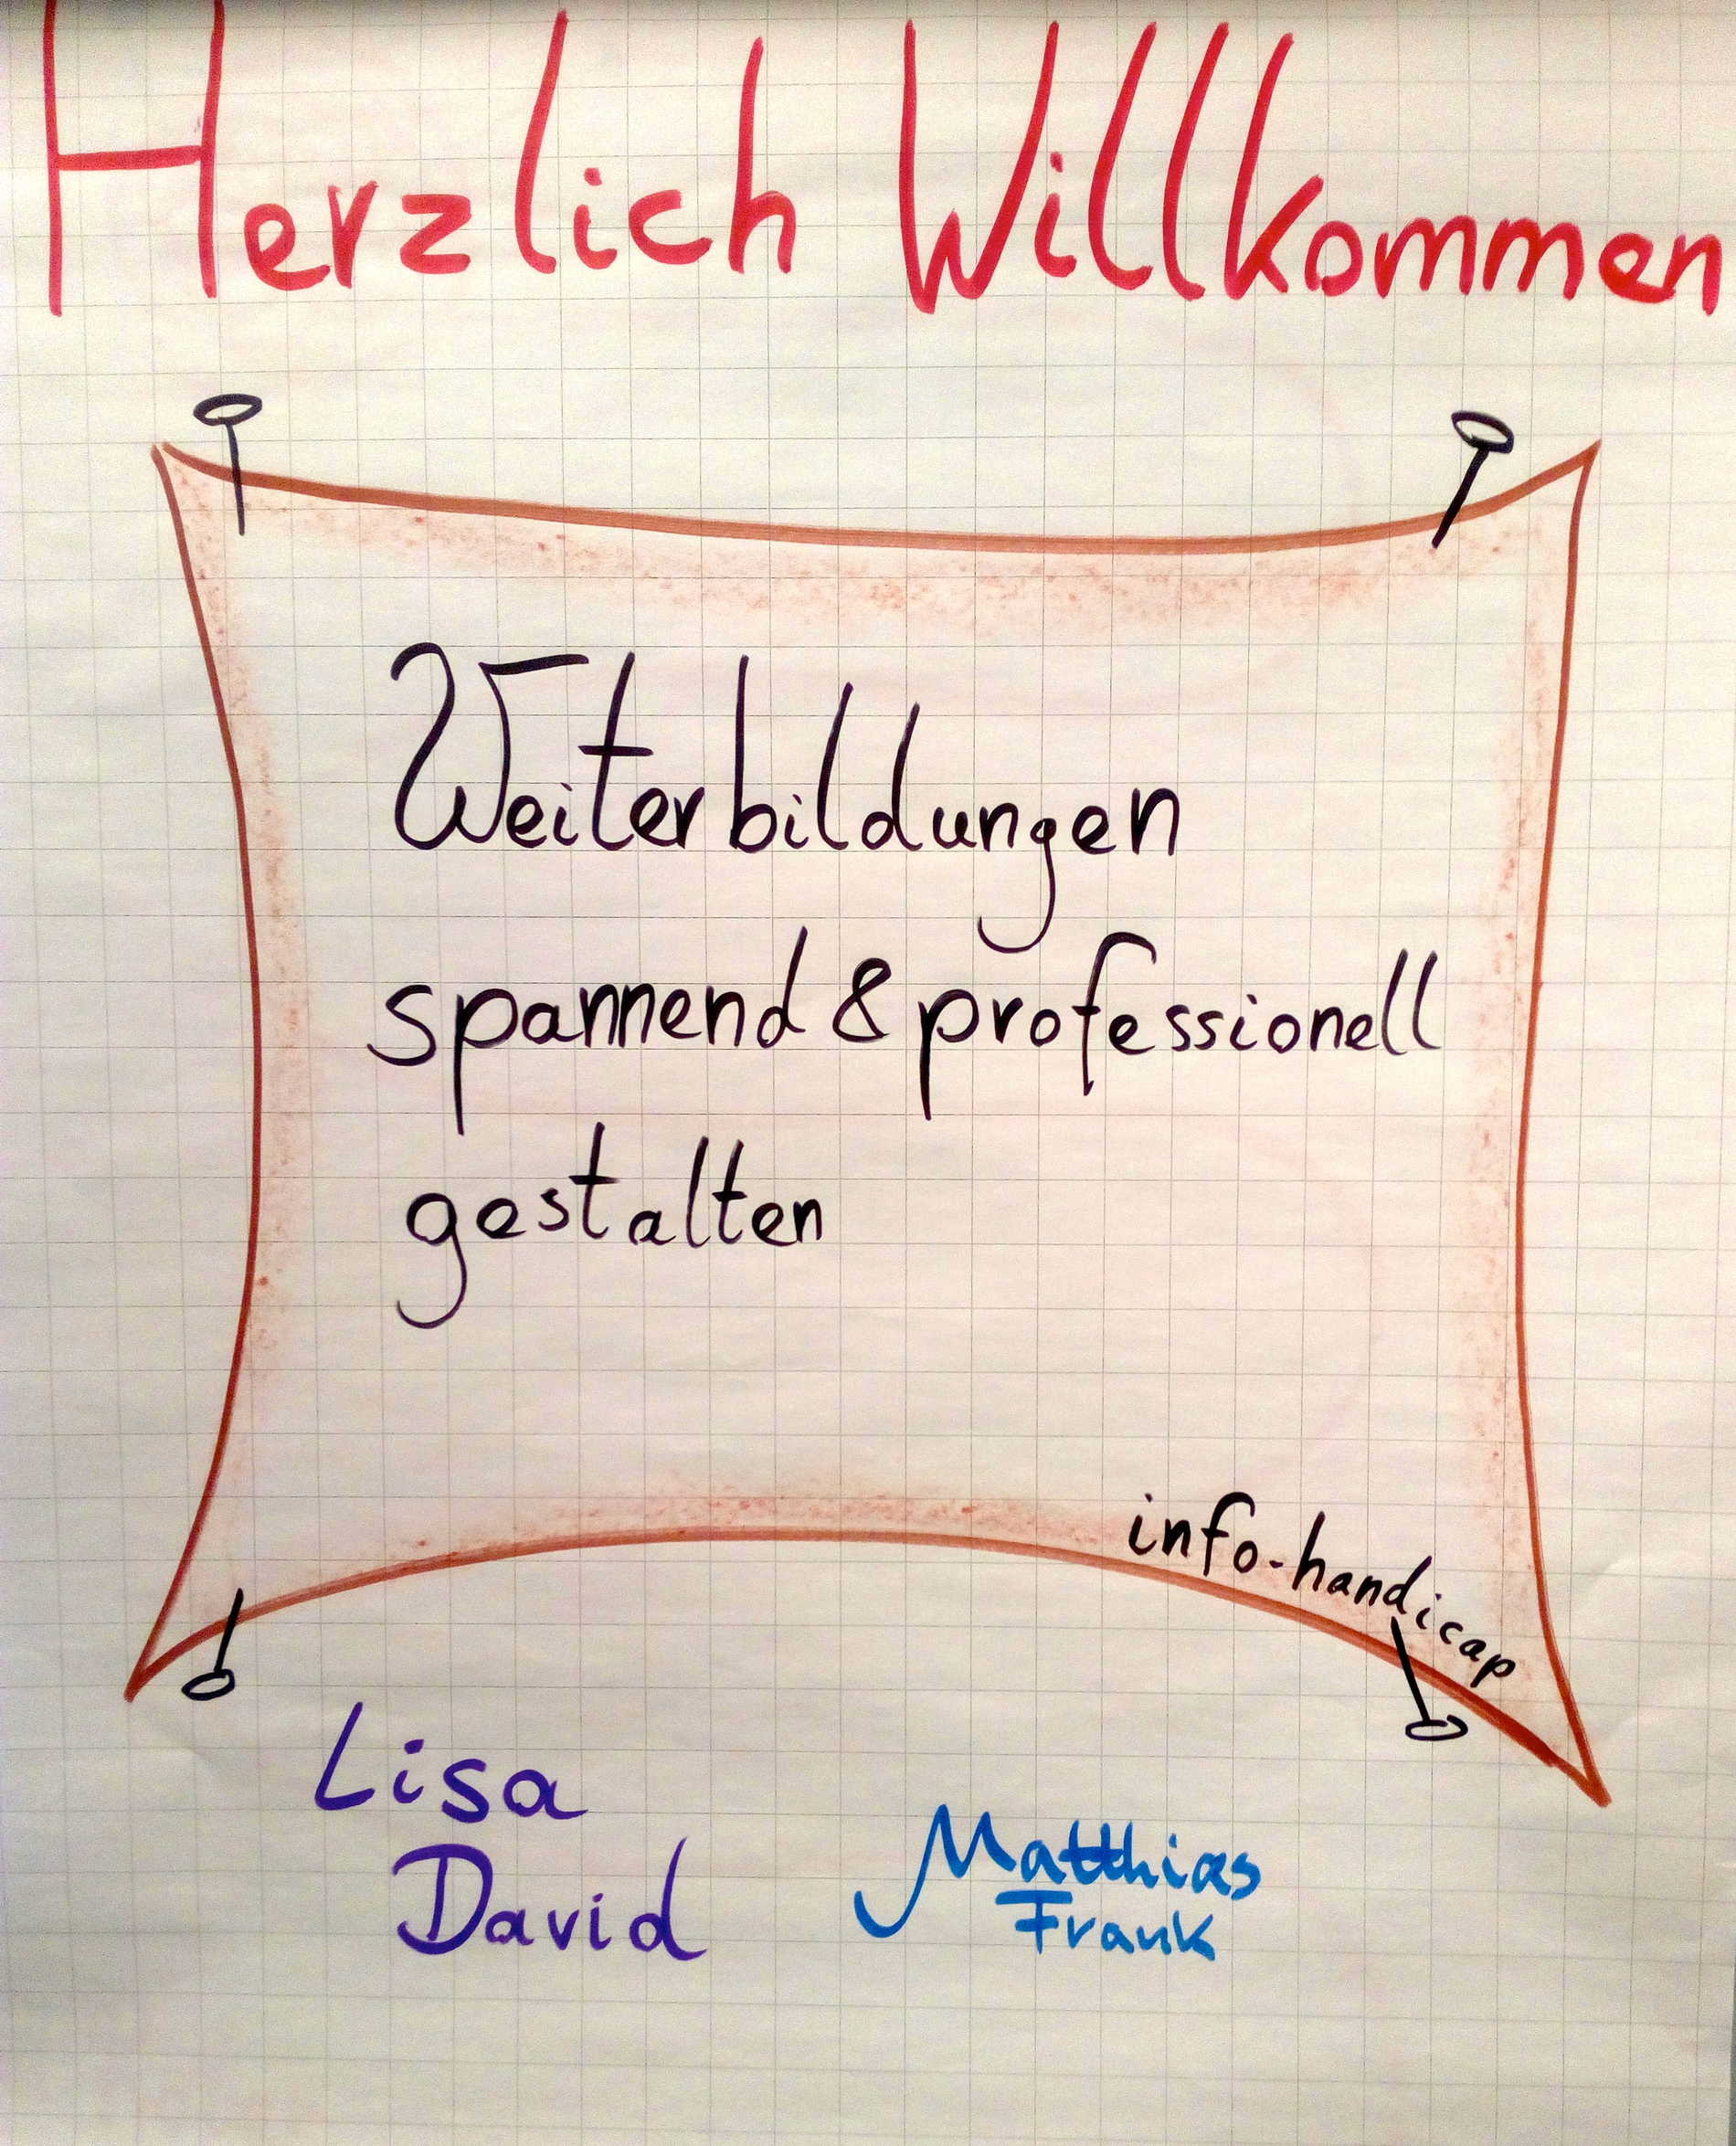 Herzlich Willkommen
Weiterbildungen
spannend & professionell
gestalten
info-handicap
Lisa
David
Matthias
Frank